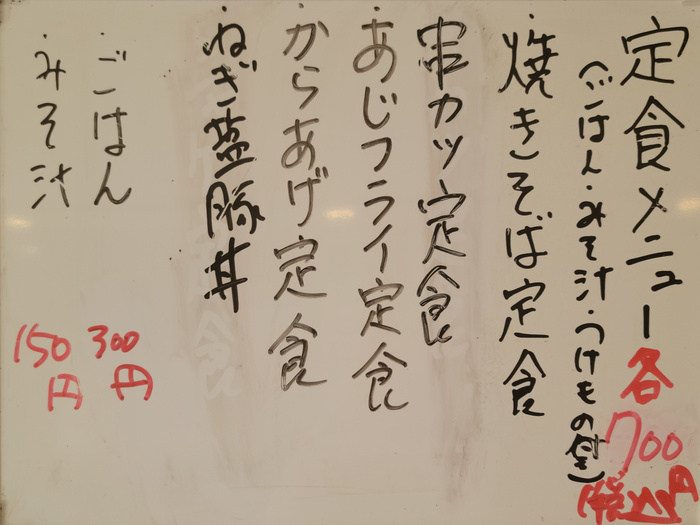 定食メニュー各700円(税込)
(ごはん・みそ汁・つけもの付)
・焼きそば定食
串カツ定食
・あじフライ定食
・からあげ定食
・ねぎ塩豚丼
・ごはん 300円
・みそ汁 150円